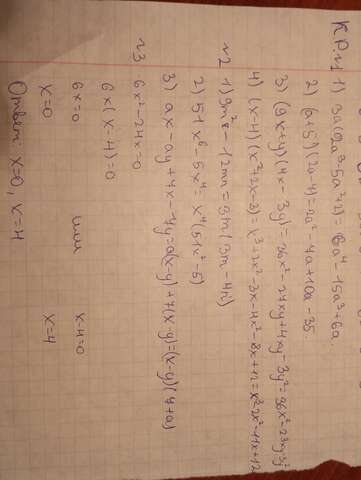 К.Р.№1
1) 3a(2a³-5a²+2) = 6a⁴-15a³+6a.
2) (a+5)(2a-4)=2a²-4a+10a-35
3) (9x+y)(4x-3y)=36x²-27xy+4xy-3y²=36x²-23xy-3y²
4) (x-4)(x²+2x-3)=x³+2x²-3x-4x²-8x+12=x³-2x²-11x+12
№2 1) 9m²-12mn=3m(3m-4n)
2) 51x⁶-5x⁴=x⁴(51x²-5)
3) ax-ay+7x-7y=a(x-y)+7(x-y)=(x-y)(7+a)
№3 6x²-24x=0
6x(x-4)=0
6x=0 или x-4=0
x=0 x=4
Ответ: x=0, x=4